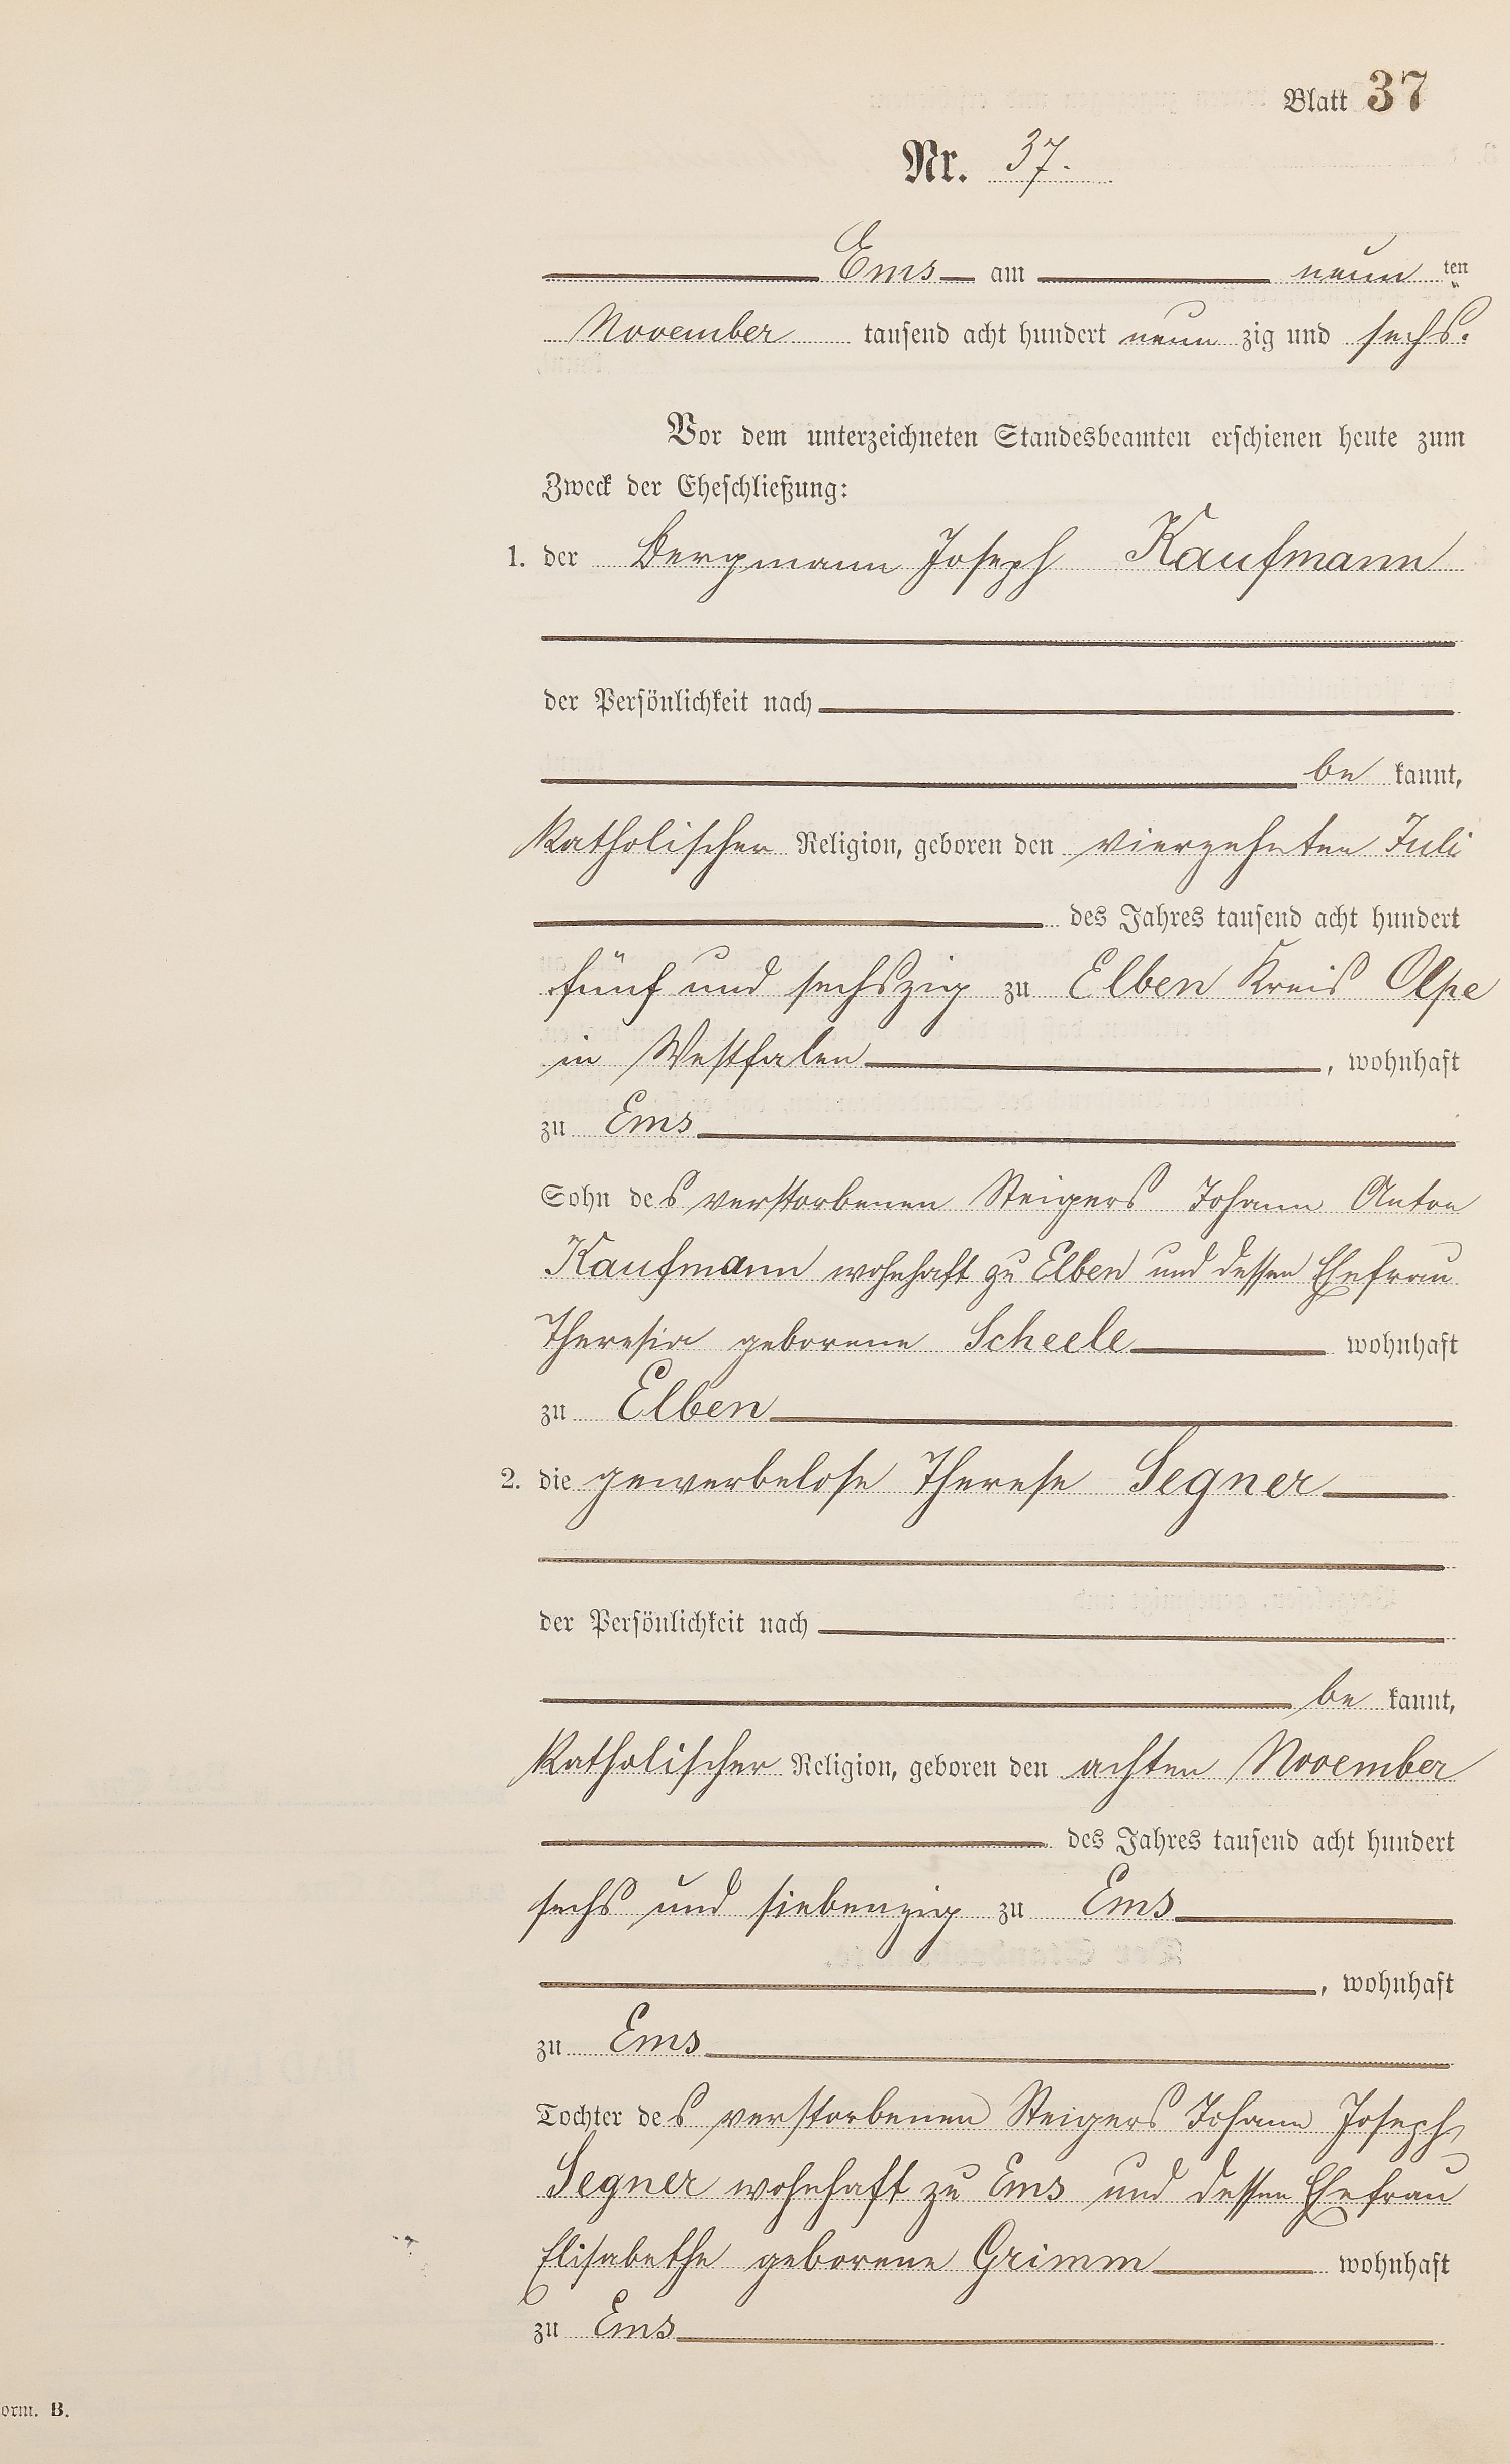 Blatt 37
Nr. 37.
Ems am neun ten
November tausend acht hundert neun zig und sechs.
Vor dem unterzeichneten Standesbeamten erschienen heute zum
Zweck der Eheschließung:
1. der Bergmann Joseph Kaufmann
der Persönlichkeit nach
be kannt,
katholischer Religion, geboren den vierzehnten Juli
des Jahres tausend acht hundert
fünf und sechszig zu Elben Kreis Olpe
in Westfalen, wohnhaft
zu Ems
Sohn des verstorbenen Steigers Johann Anton
Kaufmann wohnhaft zu Elben und dessen Ehefrau
Theresia geborene Scheele wohnhaft
zu Elben
2. die gewerbelose Therese Segner
der Persönlichkeit nach
be kannt,
katholischer Religion, geboren den achten November
des Jahres tausend acht hundert
sechs und siebenzig zu Ems
, wohnhaft
zu Ems
Tochter des verstorbenen Steigers Johann Joseph
Segner wohnhaft zu Ems und dessen Ehefrau
Elisabethe geborene Grimm wohnhaft
zu Ems
orm. B.